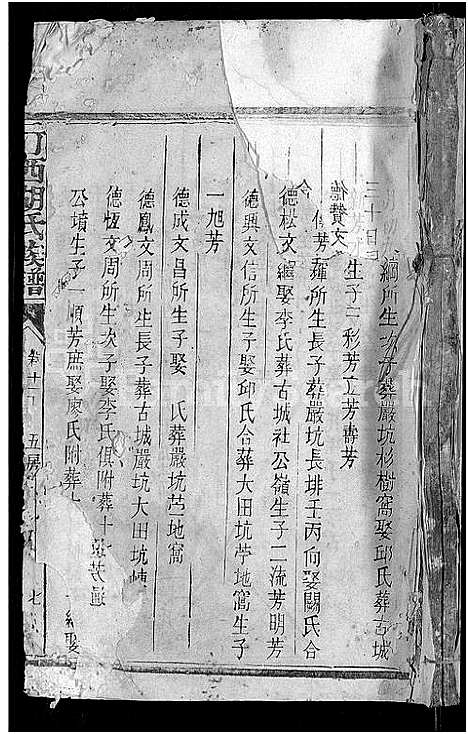 三十
德贊文
繼所生次子葬嚴坑杉樹窩娶邱氏葬古城
生子三彩芳立芳壽芳
芳羅所生長子葬嚴坑長排壬丙向娶闕氏合
德松文繼娶李氏葬古城社公嶺生子二流芳明芳
德興文信所生子娶邱氏合葬大田坑芋地窩生子
一旭芳
德成文昌所生子娶 氏葬嚴坑芒地窩
德鳳文周所生長子葬古城嚴坑大田坑
德恆文周所生次子娶李氏俱附葬十
公墳生子一順芳庶娶廖氏附葬
西胡氏族譜
卷十
五房
七